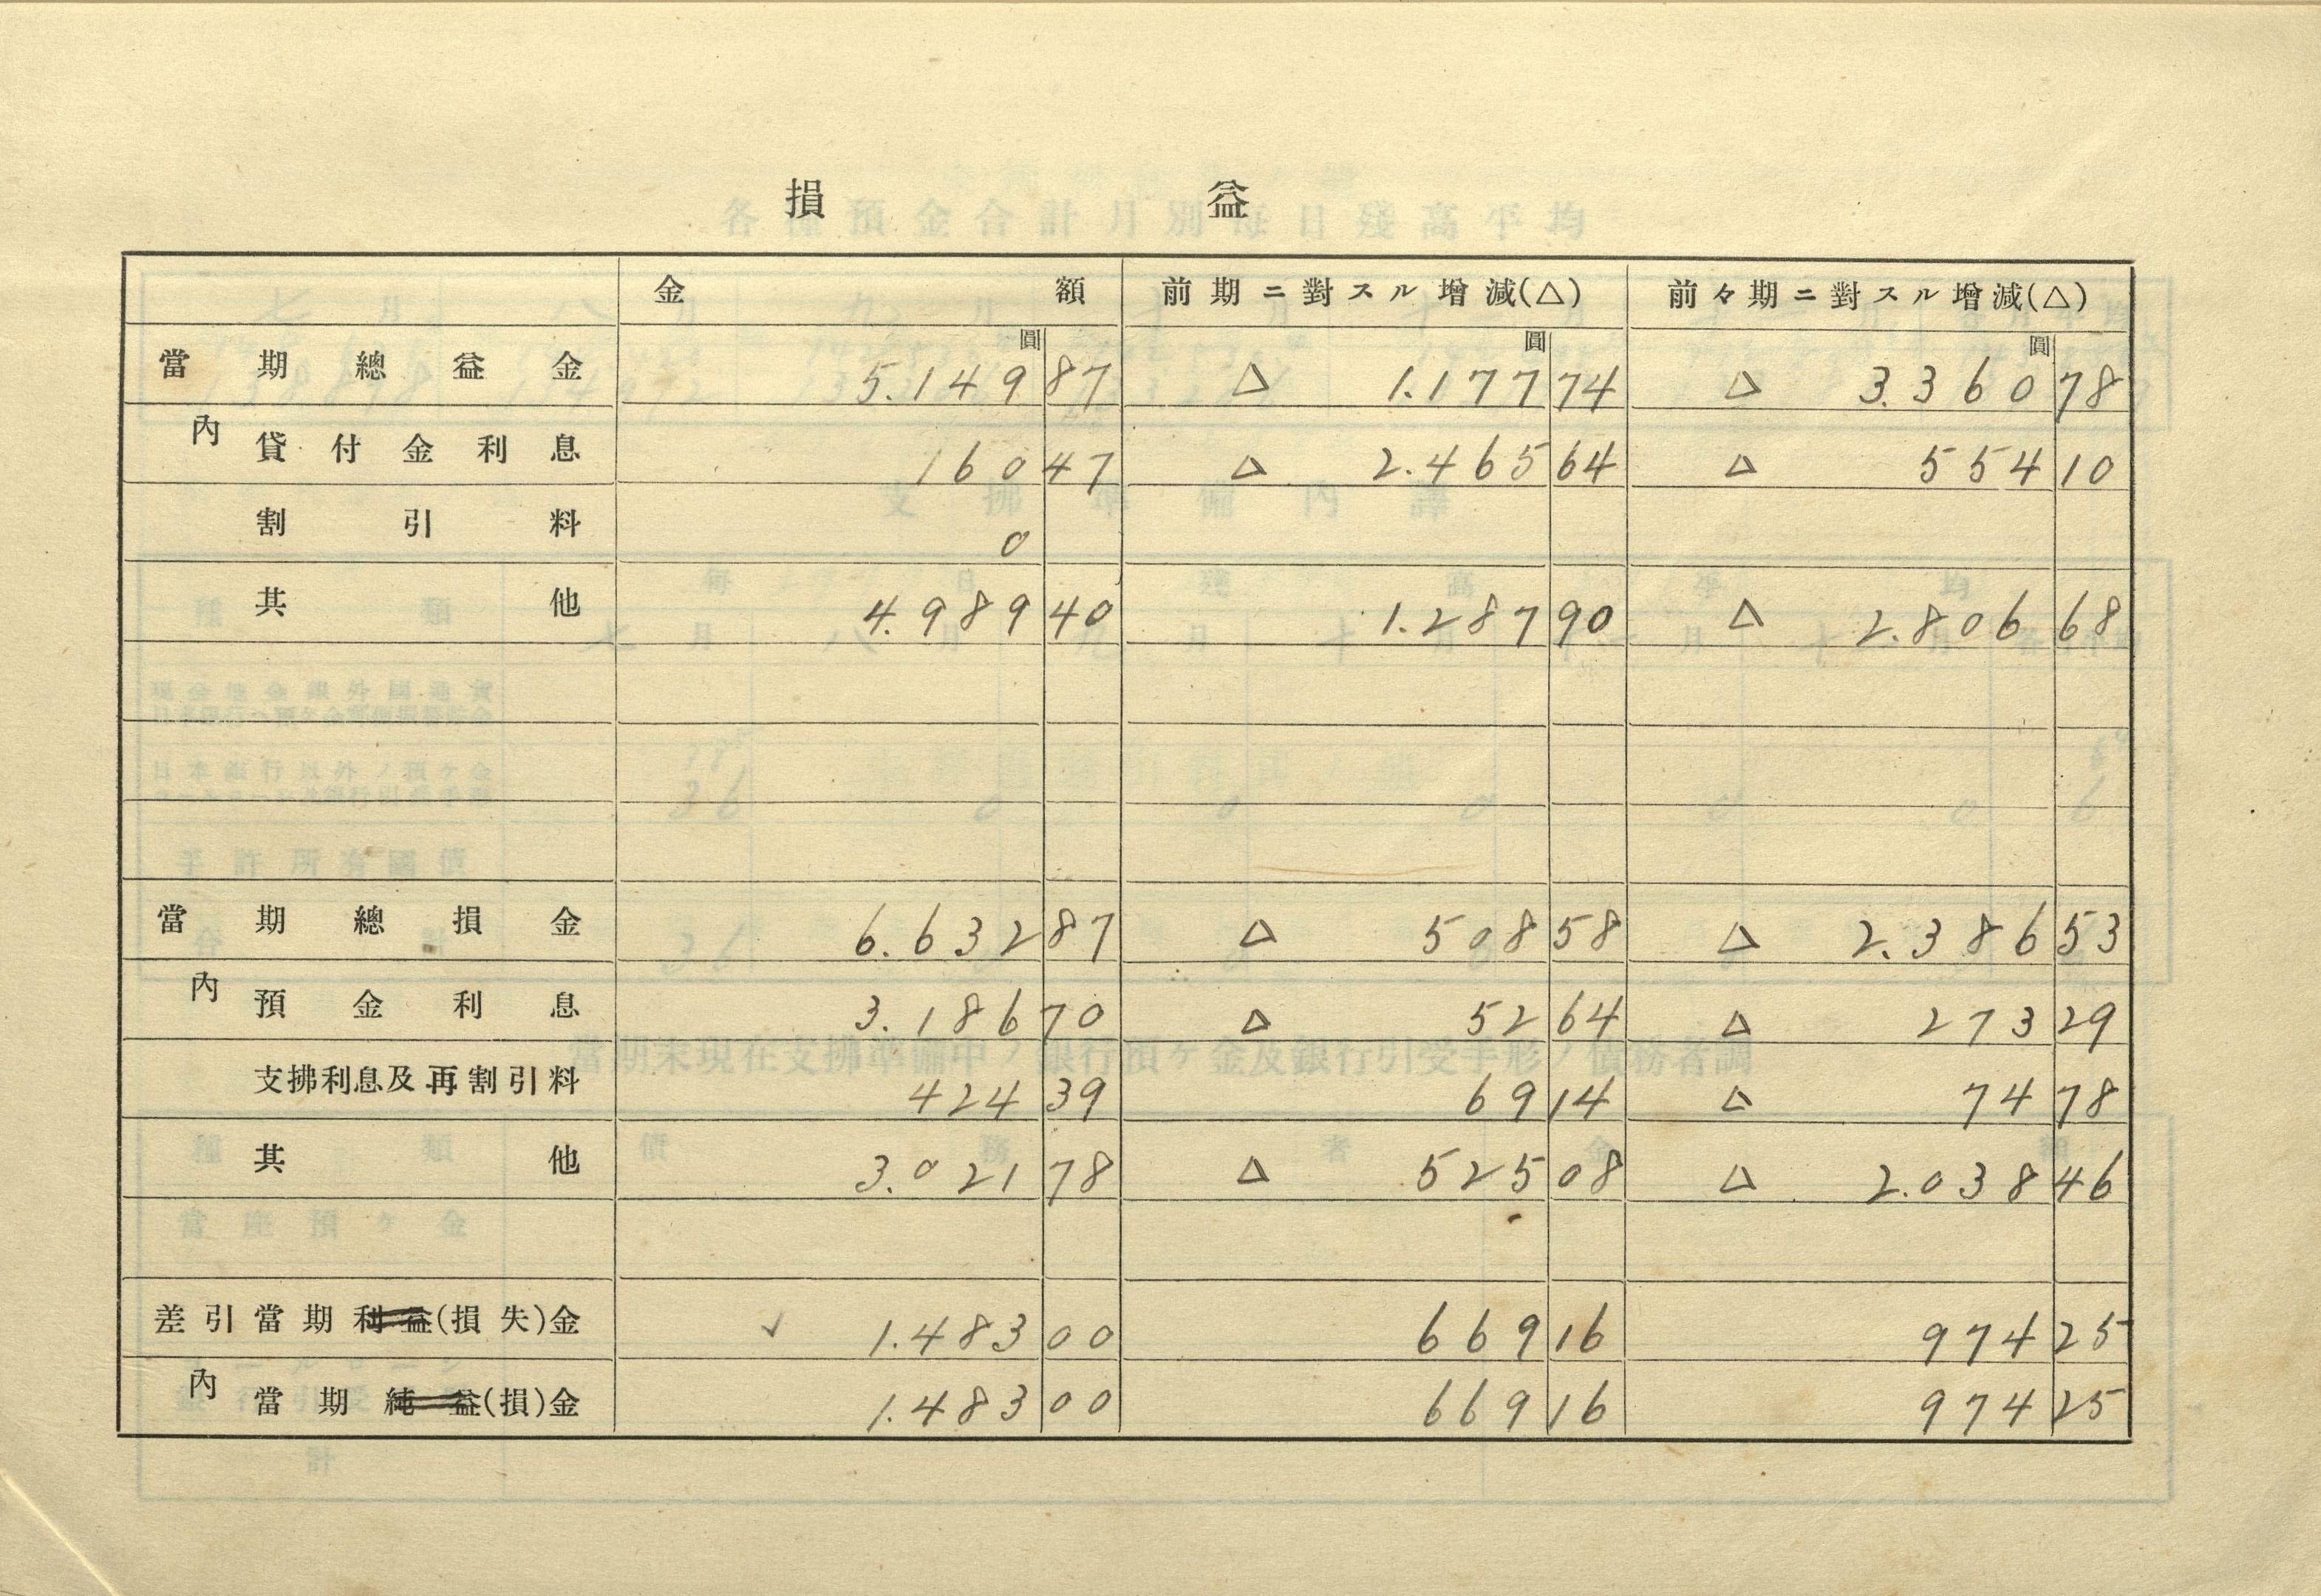 損益
金額 前期ニ對スル增減(△) 前々期ニ對スル增減(△)
圓 圓 圓
當期總益金 5.149 87 △ 1.177 74 △ 3.360 78
內 貸付金利息 160 47 △ 2.465 64 △ 554 10
割引料 0
其他 4.989 40 1.287 90 △ 2.806 68
當期總損金 6.632 87 △ 508 58 △ 2.386 53
內 預金利息 3.186 70 △ 52 64 △ 273 29
支拂利息及再割引料 424 39 69 14 △ 74 78
其他 3.021 78 △ 525 08 △ 2.038 46
差引當期利益(損失)金 ✓ 1.483 00 669 16 974 25
內 當期純益(損)金 1.483 00 669 16 974 25